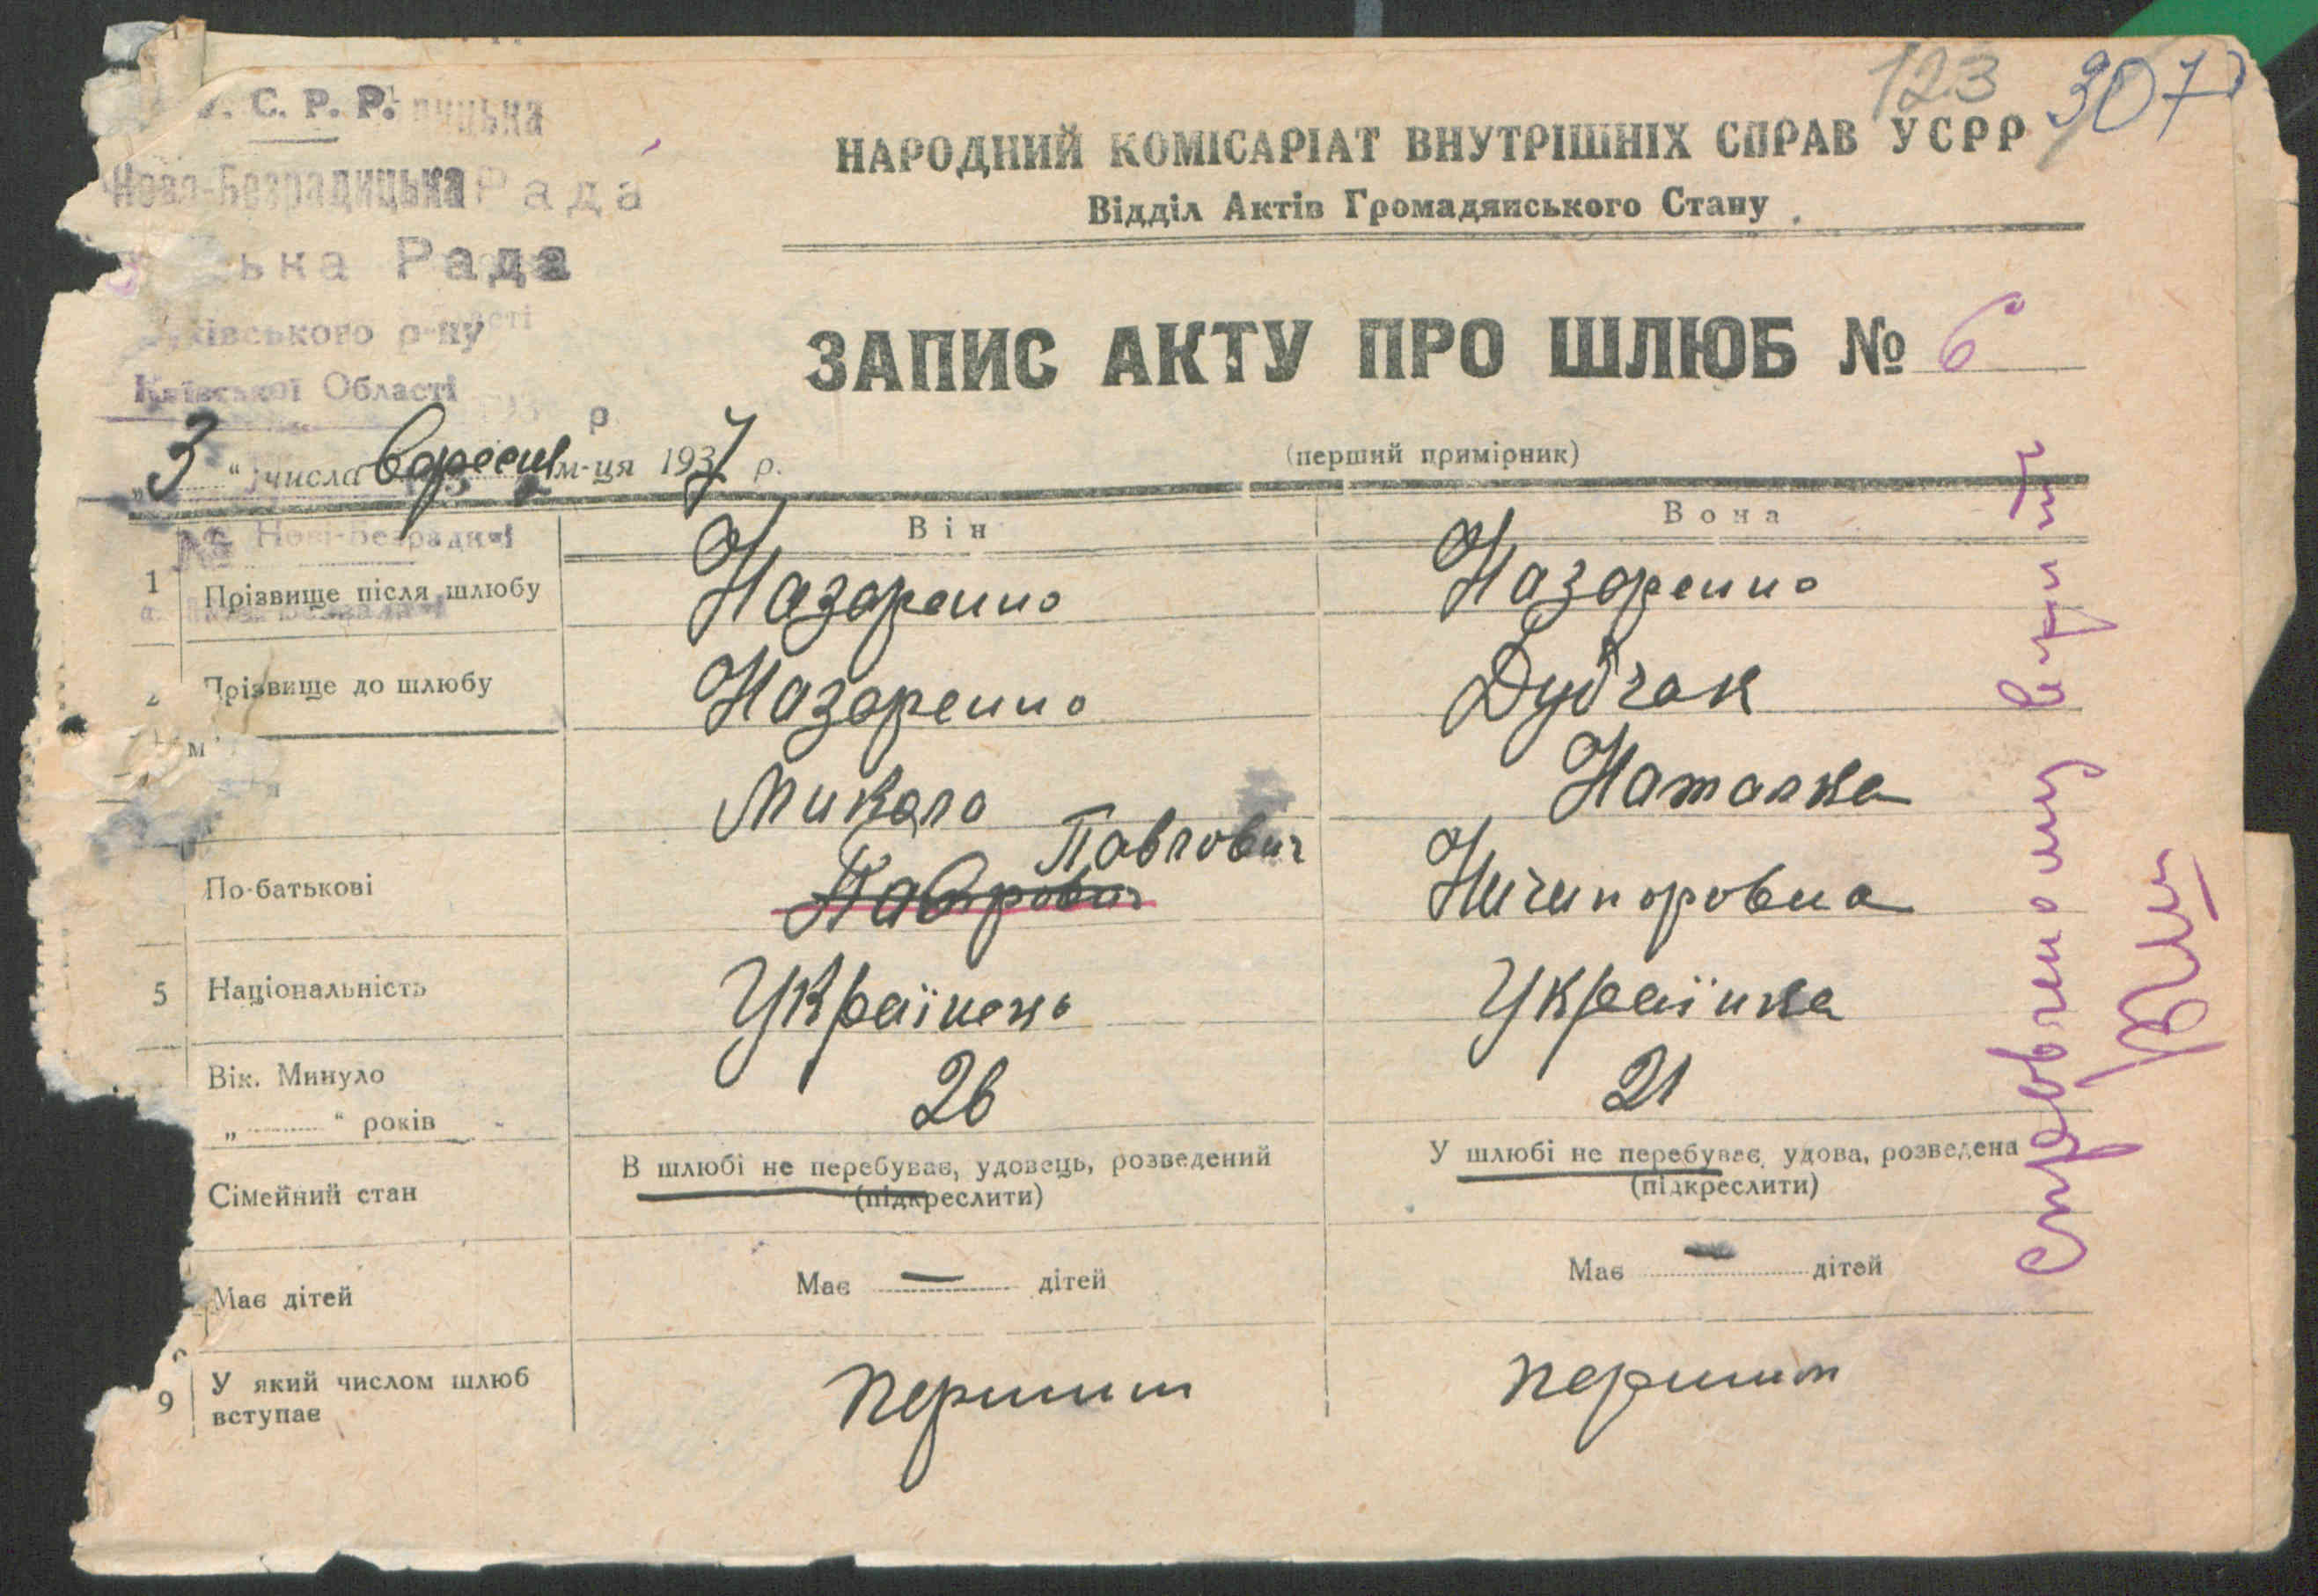 123 307
С. Р. Р.
Ново-Безрадицька Рада
ька Рада
івського р-ну
Київської Області
НАРОДНИЙ КОМІСАРІАТ ВНУТРІШНІХ СПРАВ УСРР
Відділ Актів Громадянського Стану
ЗАПИС АКТУ ПРО ШЛЮБ № 6
(перший примірник)
„3“ числа вересня м-ця 1937 р.
Він Вона
№ Нові-Безрадичі
1 Прізвище після шлюбу Назаренко Назаренко
2 Прізвище до шлюбу Назаренко Дубчак
Микола Наталка
Павлович
По-батькові Ничипоровна
5 Національність Українець Українка
Вік. Минуло
„ “ років 26 21
Сімейний стан В шлюбі не перебуває, удовець, розведений У шлюбі не перебуває, удова, розведена
(підкреслити) (підкреслити)
Має дітей Має — дітей Має — дітей
9 У який числом шлюб
вступає першим першим
справленому вірить